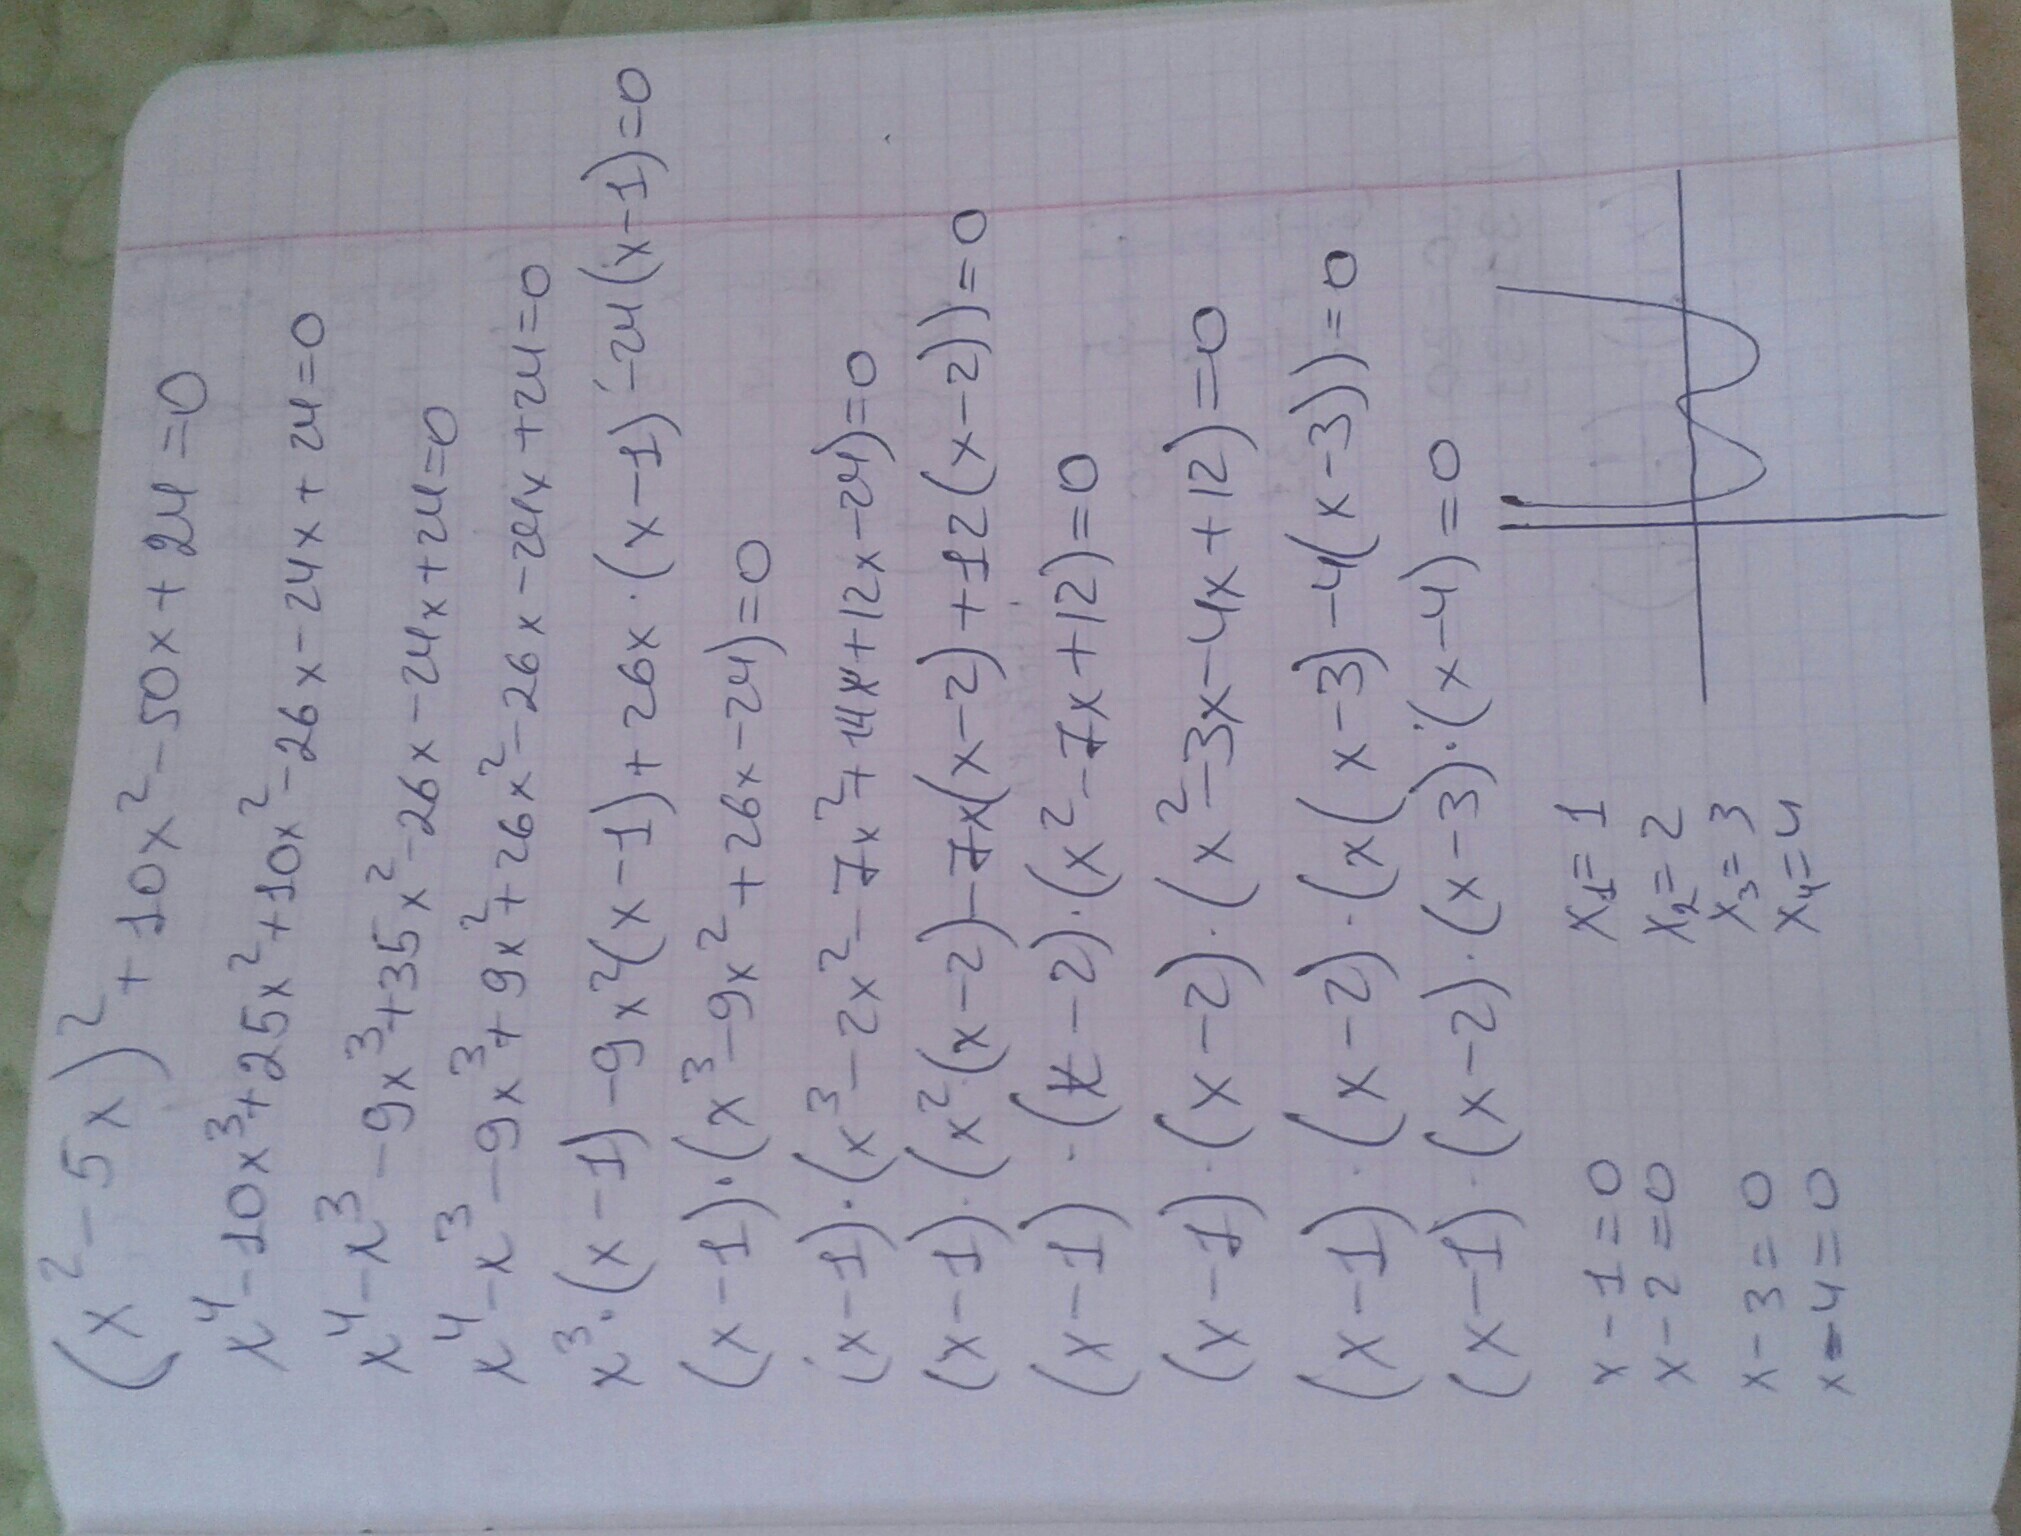 (x²-5x)²+10x²-50x+24=0
x⁴-10x³+25x²+10x²-26x-24x+24=0
x⁴-x³-9x³+35x²-26x-24x+24=0
x⁴-x³-9x³+9x²+26x²-26x-24x+24=0
x³·(x-1)-9x²(x-1)+26x·(x-1)-24(x-1)=0
(x-1)·(x³-9x²+26x-24)=0
(x-1)·(x³-2x²-7x²+14x+12x-24)=0
(x-1)·(x²·(x-2)-7x(x-2)+12(x-2))=0
(x-1)·(x-2)·(x²-7x+12)=0
(x-1)·(x-2)·(x²-3x-4x+12)=0
(x-1)·(x-2)·(x(x-3)-4(x-3))=0
(x-1)·(x-2)·(x-3)·(x-4)=0
x-1=0 x₁=1
x-2=0 x₂=2
x-3=0 x₃=3
x-4=0 x₄=4